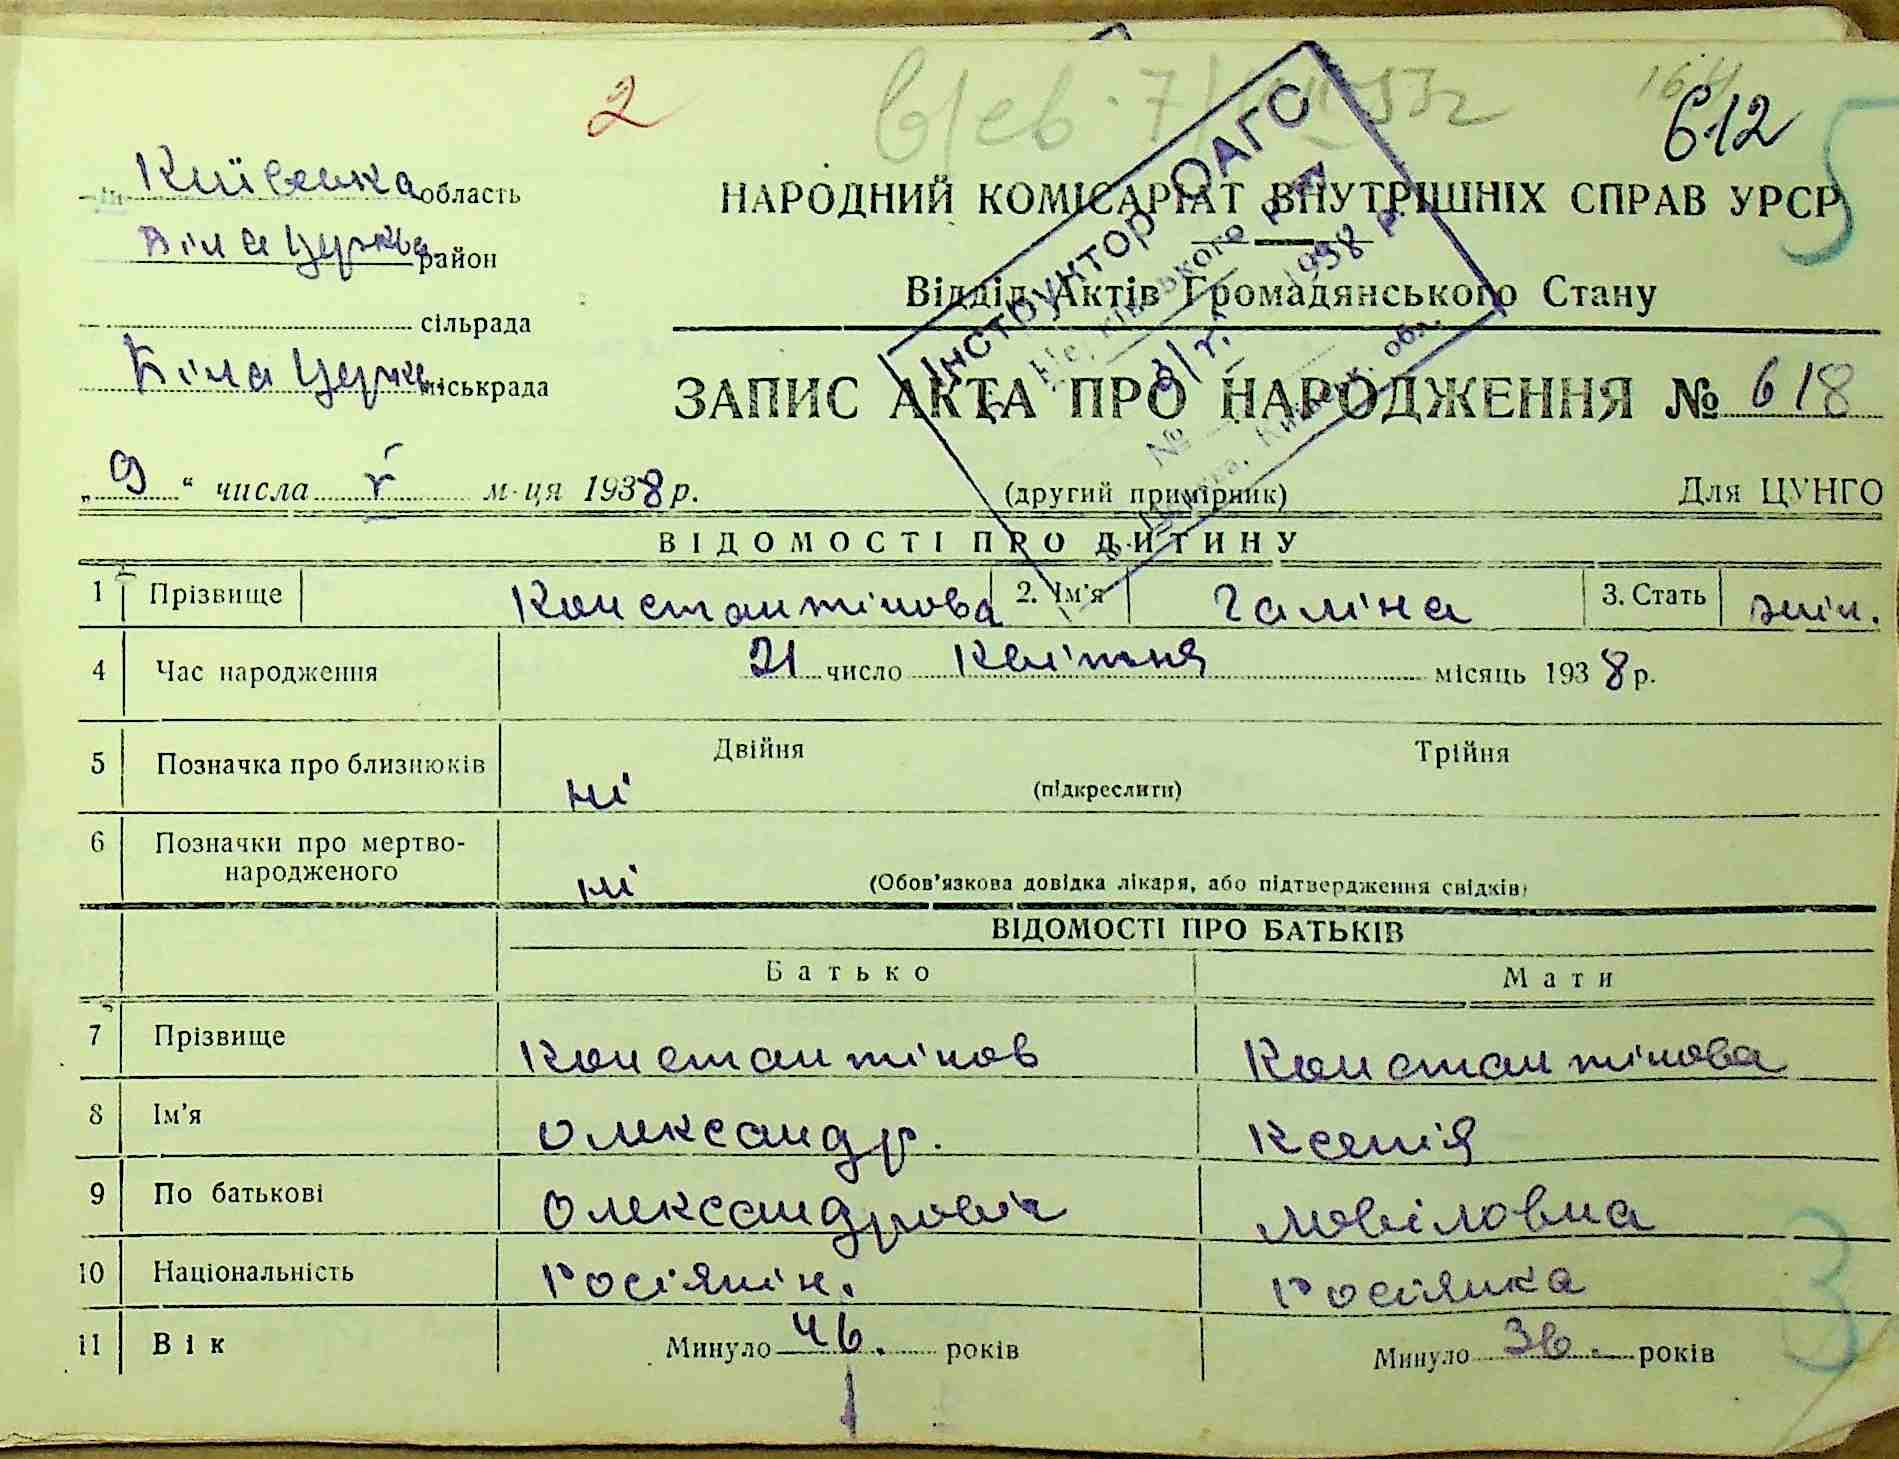 2
612
Київська область
НАРОДНИЙ КОМІСАРІАТ ВНУТРІШНІХ СПРАВ УРСР
Біла Церква район
Відділ Актів Громадянського Стану
сільрада
Біла Церк міськрада
ЗАПИС АКТА ПРО НАРОДЖЕННЯ № 618
Інструктор ОАГС
1938 р.
„9“ числа V м-ця 1938 р.
(другий примірник)
Для ЦУНГО
ВІДОМОСТІ ПРО ДИТИНУ
1 Прізвище Константінова 2. Ім'я Галіна 3. Стать жін.
4 Час народження 21 число Квітня місяць 1938 р.
5 Позначка про близнюків ні Двійня Трійня
(підкреслити)
6 Позначки про мертво-
народженого ні (Обов'язкова довідка лікаря, або підтвердження свідків)
ВІДОМОСТІ ПРО БАТЬКІВ
Батько Мати
7 Прізвище Константінов Константінова
8 Ім'я Олександр. Ксенія
9 По батькові Олександровіч
10 Національність Росіянін. Росіянка
11 Вік Минуло 46. років Минуло 36. років
5
3